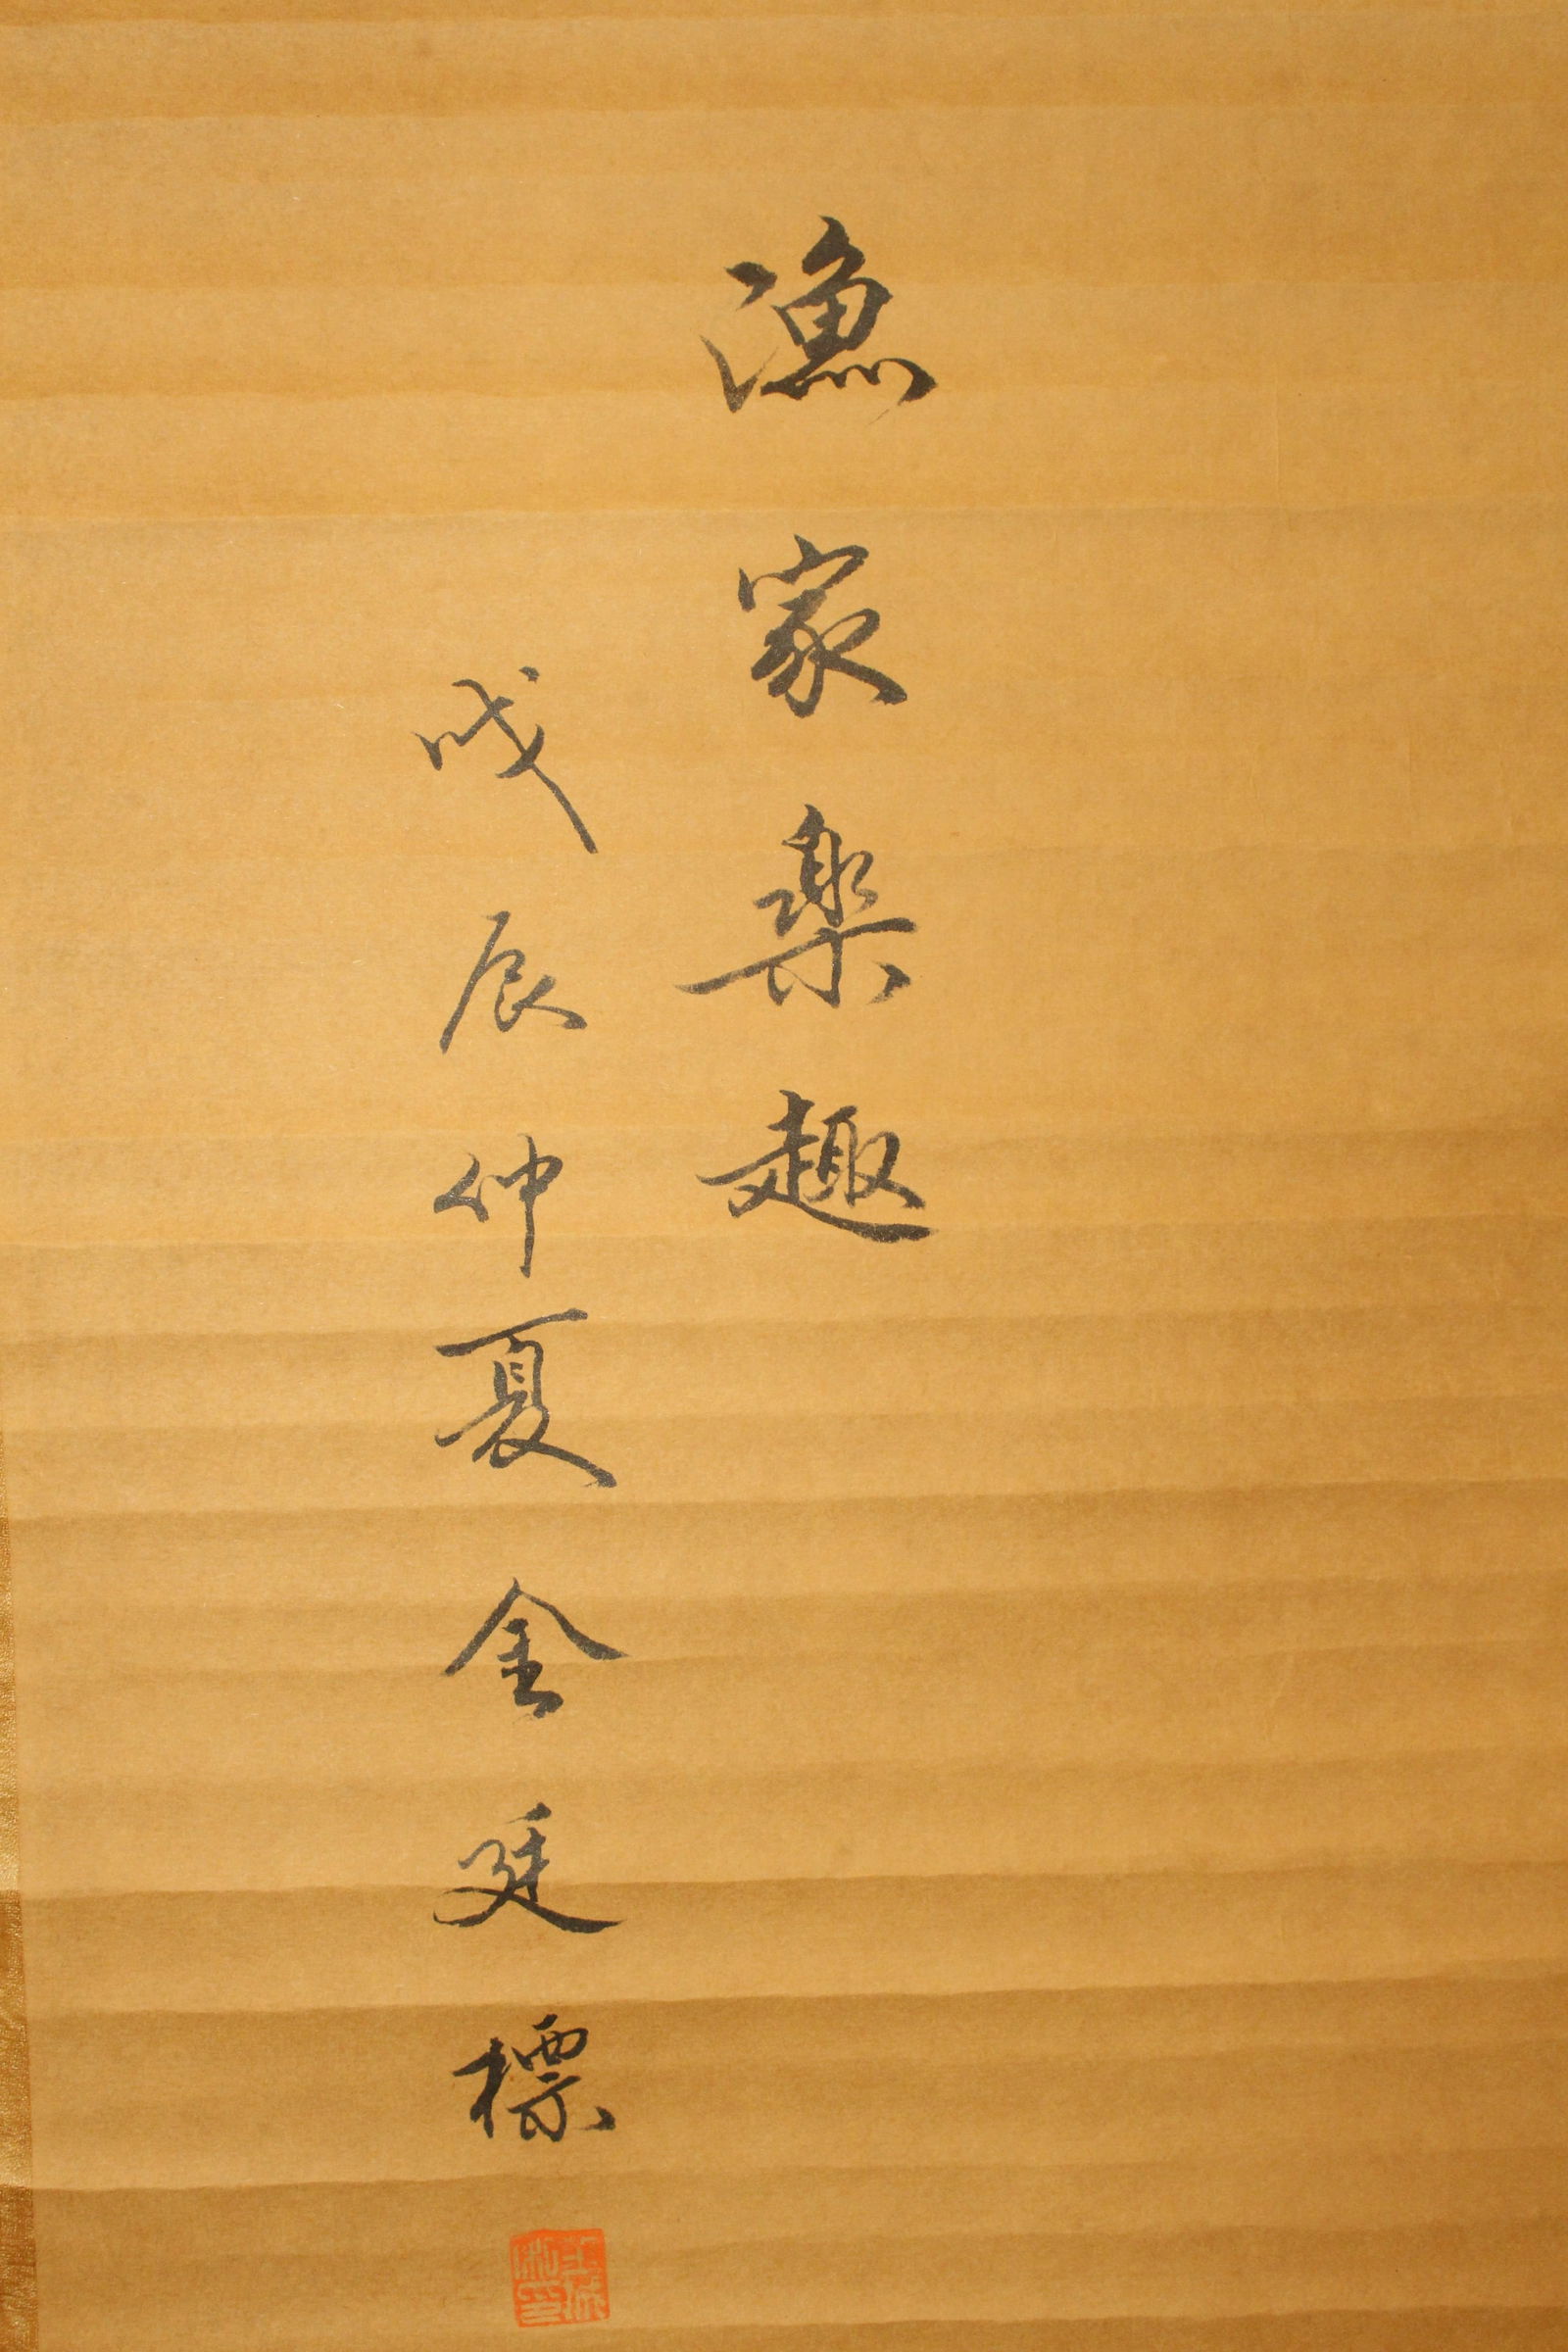 漁家樂趣
戊辰仲夏金廷標